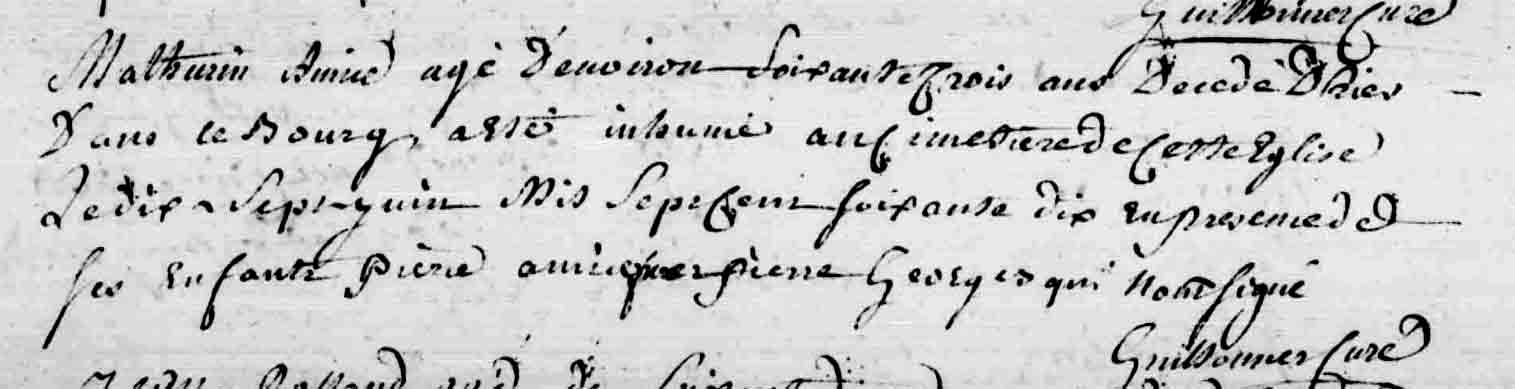 Guillonner Curé
Mathurin Amice agé d'environ soixante trois ans décédé d'hier
dans le Bourg, a esté inhumé au Cimetiere de Cette Eglise
Le dix Sept juin Mil Sept Cent soixante dix en presence de
ses enfants pierre amice et pierre Georges qui n'ont signé
Guillonner Curé